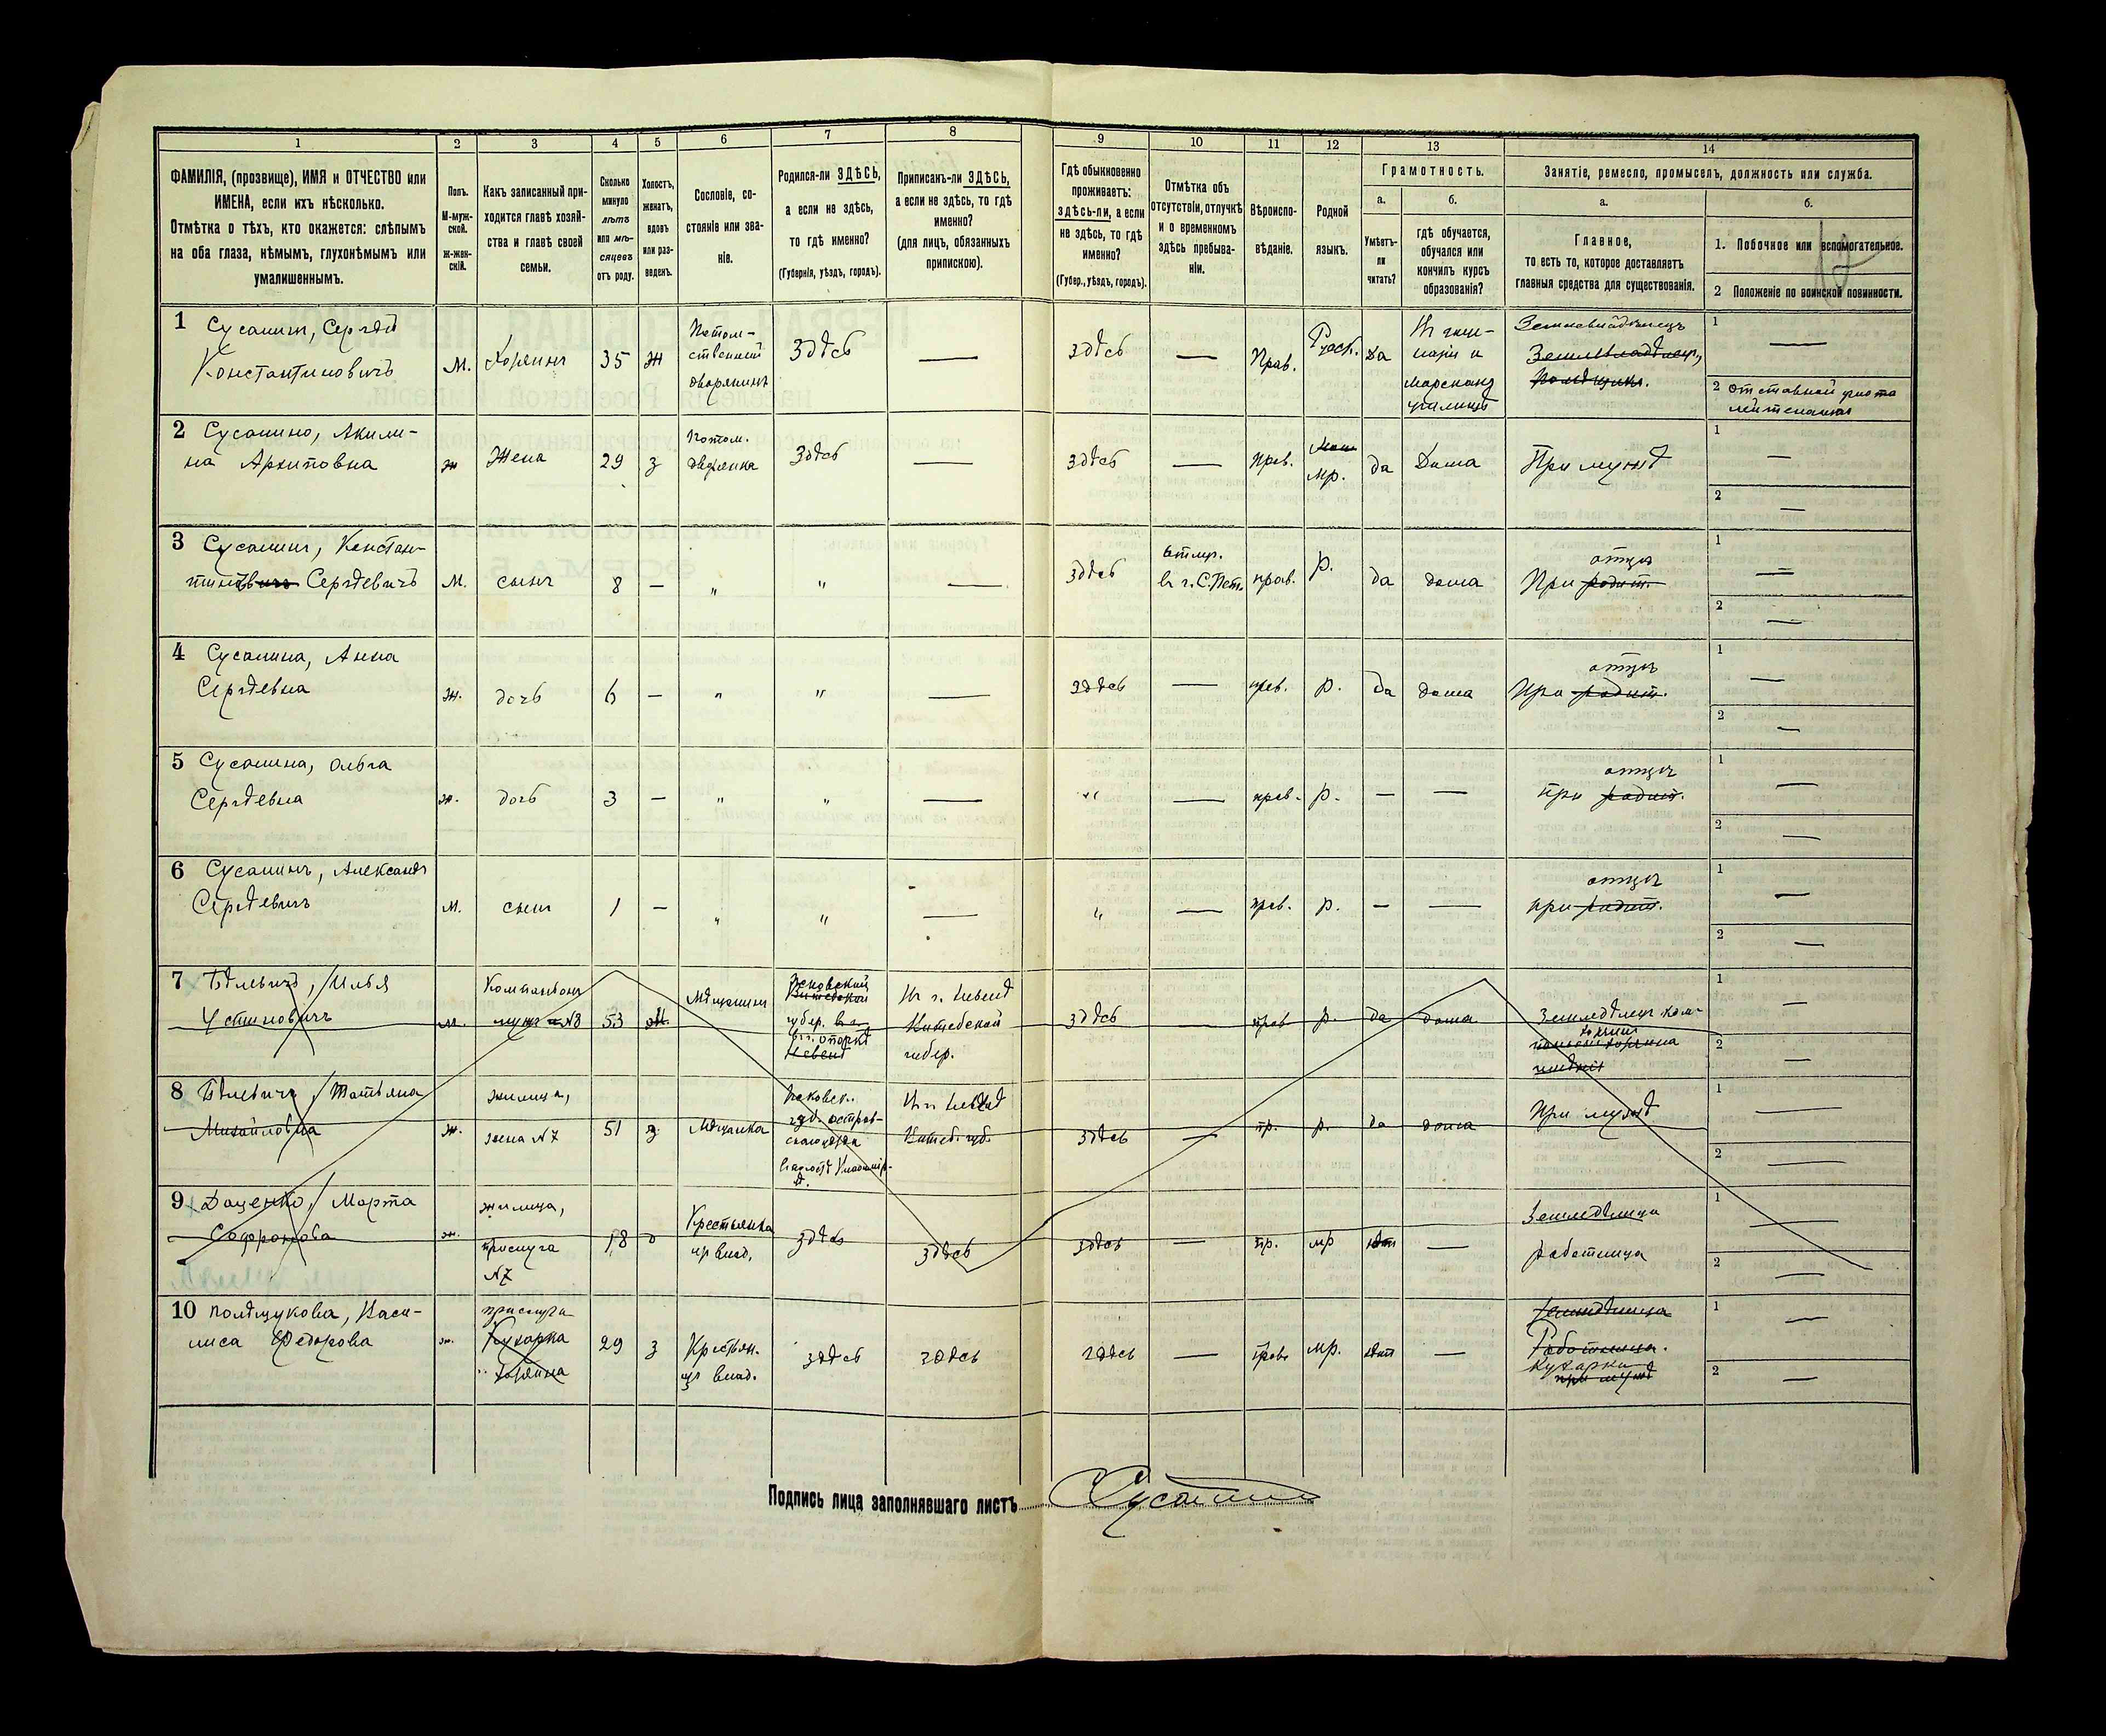 1 2 3 4 5 6 7 8 9 10 11 12 13 14
ФАМИЛІЯ, (прозвище), ИМЯ и ОТЧЕСТВО или
ИМЕНА, если ихъ нѣсколько.
Отмѣтка о тѣхъ, кто окажется: слѣпымъ
на оба глаза, нѣмымъ, глухонѣмымъ или
умалишеннымъ.
Полъ.
М-муж-
ской.
ж-жен-
скій.
Какъ записанный при-
ходится главѣ хозяй-
ства и главѣ своей
семьи.
Сколько
минуло
лѣтъ
или мѣ-
сяцевъ
отъ роду.
Холостъ,
женатъ,
вдовъ
или раз-
веденъ.
Сословіе, со-
стояніе или зва-
ніе.
Родился-ли ЗДѢСЬ,
а если не здѣсь,
то гдѣ именно?
(Губернія, уѣздъ, городъ).
Приписанъ-ли ЗДѢСЬ,
а если не здѣсь, то гдѣ
именно?
(для лицъ, обязанныхъ
припискою).
Гдѣ обыкновенно
проживаетъ:
здѣсь-ли, а если
не здѣсь, то гдѣ
именно?
(Губер., уѣздъ, городъ).
Отмѣтка объ
отсутствіи, отлучкѣ
и о временномъ
здѣсь пребыва-
ніи.
Вѣроиспо-
вѣданіе.
Родной
языкъ.
Грамотность.
а.
Умѣетъ-
ли
читать?
б.
гдѣ обучается,
обучался или
кончилъ курсъ
образованія?
Занятіе, ремесло, промыселъ, должность или служба.
а.
Главное,
то есть то, которое доставляетъ
главныя средства для существованія.
б.
1. Побочное или вспомогательное.
2 Положеніе по воинской повинности.
1 Сусанинъ, Сергѣй
Константиновичъ
М.
Хозяинъ
35
Ж
Потом-
ственный
дворянинъ
Здѣсь
—
Здѣсь
—
Прав.
Русск.
да
Въ гим-
назіи и
морскомъ
училищѣ
Землевладѣлецъ
Землевладѣлецъ,
помѣщикъ.
1 —
2 отставной флота
лейтенантъ
2 Сусанина, Акили-
на Архиповна
ж
Жена
29
з
Потом.
дворянка
Здѣсь
—
Здѣсь
—
Прав.
Мр.
да
Дома
При мужѣ
1 —
2 —
3 Сусанинъ, Констан-
тинъ Сергѣевичъ
М.
сынъ
8
—
„
„
—
Здѣсь
въ г. С. Пет.
прав.
р.
да
дома
отцѣ
При родит.
1 —
2 —
4 Сусанина, Анна
Сергѣевна
ж.
дочь
6
—
„
„
—
здѣсь
—
прав.
р.
да
дома
отцѣ
При родит.
1 —
2 —
5 Сусанина, Ольга
Сергѣевна
ж.
дочь
3
—
„
„
—
„
—
прав.
р.
—
—
отцѣ
при родит.
1 —
2 —
6 Сусанинъ, Александръ
Сергѣевичъ
М.
сынъ
1
—
„
„
—
„
—
прав.
р.
—
—
отцѣ
при родит.
1 —
2 —
7 Бѣлевичъ, Илья
Устиновичъ
м.
Компаніонъ
мужъ №8
53
Мѣщанинъ
Псковской
Витебской
губер. в г.
Невелѣ
Въ г. Невелѣ
Витебской
губер.
здѣсь
прав
р.
да
дома
Земледѣлецъ
1 —
2 —
8 Бѣлевичъ, Татьяна
Михайловна
ж.
жилица,
жена №7
51
з.
Мѣщанка
Псковск.
губ. остров-
скаго уѣзда
Въ г. Невелѣ
Витеб. губ.
здѣсь
—
пр.
р.
да
дома
При мужѣ
1 —
2 —
9 Доценко, Марта
Софронова
ж.
жилица,
прислуга
№7
18
Крестьянка
из влад.
здѣсь
здѣсь
здѣсь
—
пр.
мр
нѣт
—
Земледѣлица
работница
1 —
2 —
10 Полѣщукова, Васи-
лиса Федорова
ж.
прислуга
Кухарка
Хозяина
29
з
Крестьян.
из влад.
здѣсь
здѣсь
здѣсь
—
прав
мр.
нѣт
—
Земледѣлица
Работница.
кухарка
при мужѣ
1 —
2 —
Подпись лица заполнявшаго листъ ССусанинъ